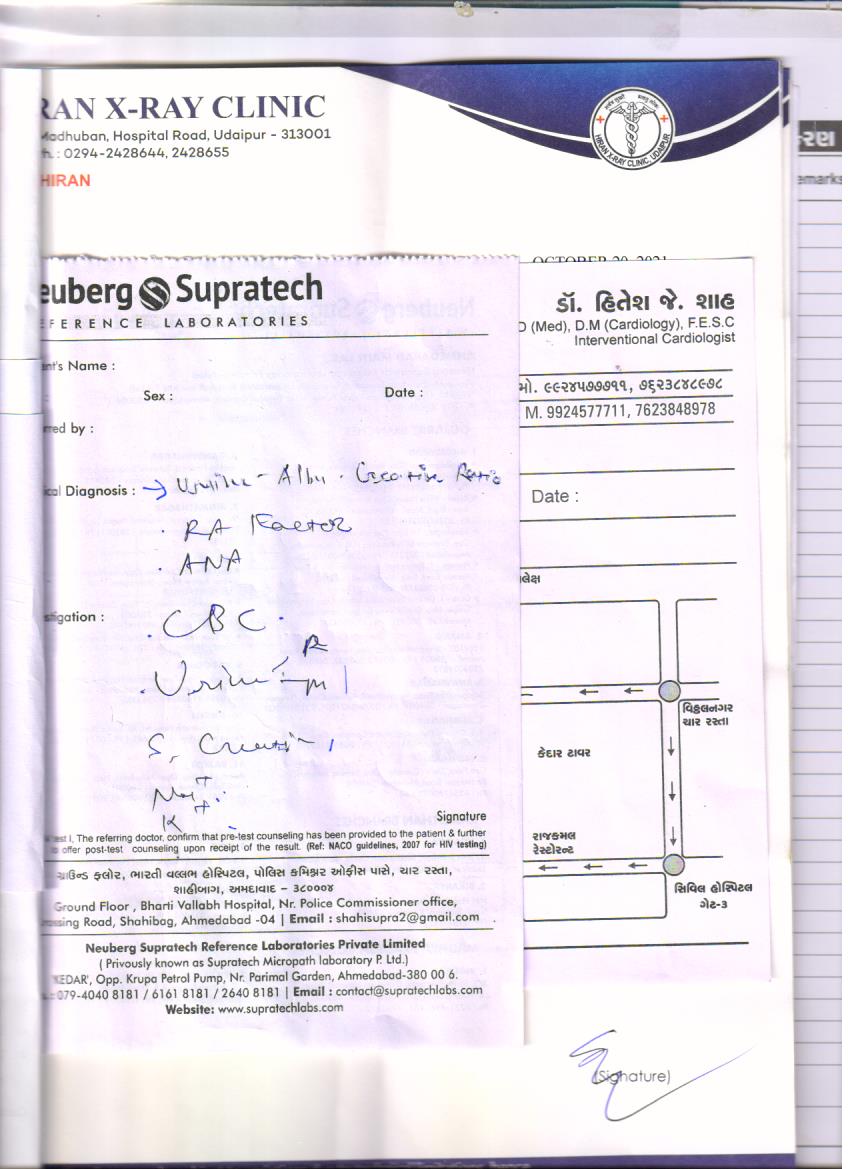 RAN X-RAY CLINIC
Madhuban, Hospital Road, Udaipur - 313001
h. : 0294-2428644, 2428655
HIRAN
HIRAN X-RAY CLINIC, UDAIPUR
OCTOBER 20, 2021
euberg Supratech
EFERENCE LABORATORIES
nt's Name :
Sex :
Date :
rred by :
cal Diagnosis : → Urine - Albu. Creatine Ratio
. RA Factor
. ANA
stigation :
. CBC .
. Urine
S. Creatin
Na+
K
Signature
test I, The referring doctor, confirm that pre-test counseling has been provided to the patient & further
offer post-test counseling upon receipt of the result. (Ref: NACO guidelines, 2007 for HIV testing)
ગ્રાઉન્ડ ફ્લોર, ભારતી વલ્લભ હોસ્પિટલ, પોલિસ કમિશ્નર ઓફીસ પાસે, ચાર રસ્તા,
શાહીબાગ, અમદાવાદ - ૩૮૦૦૦૪
Ground Floor , Bharti Vallabh Hospital, Nr. Police Commissioner office,
ssing Road, Shahibag, Ahmedabad -04 | Email : shahisupra2@gmail.com
Neuberg Supratech Reference Laboratories Private Limited
( Privously known as Supratech Micropath laboratory P. Ltd.)
'KEDAR', Opp. Krupa Petrol Pump, Nr. Parimal Garden, Ahmedabad-380 00 6.
: 079-4040 8181 / 6161 8181 / 2640 8181 | Email : contact@supratechlabs.com
Website: www.supratechlabs.com
ડૉ. હિતેશ જે. શાહ
D (Med), D.M (Cardiology), F.E.S.C
Interventional Cardiologist
મો. ૯૯૨૪૫૭૭૭૧૧, ૭૬૨૩૮૪૮૯૭૮
M. 9924577711, 7623848978
Date :
લેક્ષ
વિઠ્ઠલનગર
ચાર રસ્તા
કેદાર ટાવર
રાજકમલ
રેસ્ટોરન્ટ
સિવિલ હોસ્પિટલ
ગેટ-૩
(Signature)
રણ
emarks